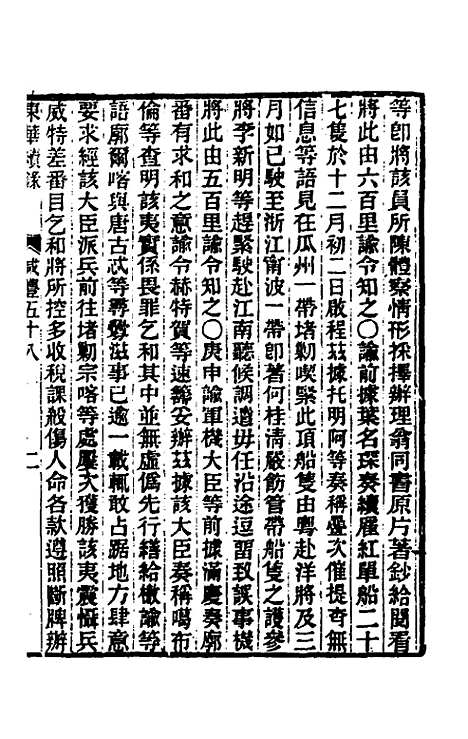 等即將該員所陳體察情形採擇辦理翁同書原片著鈔給閱看
將此由六百里諭令知之〇諭前據葉名琛奏續雇紅單船二十
七隻於十二月初二日啟程茲據托明阿等奏稱疊次催提杳無
信息等語見在瓜州一帶堵勦喫緊此項船隻由粵赴洋將及三
月如已駛至浙江甯波一帶即著何桂淸嚴飭管帶船隻之護參
將李新明等趕緊駛赴江南聽候調遣毋任沿途逗留致誤事機
將此由五百里諭令知之〇庚申諭軍機大臣等前據滿慶奏廓
番有求和之意諭令赫特賀等速籌妥辦茲據該大臣奏稱噶布
倫等查明該夷實係畏罪乞和其中並無虛僞先行繕給檄諭等
語廓爾喀與唐古忒等尋釁滋事已逾一載輒敢占踞地方肆意
要求經該大臣派兵前往堵勦宗喀等處屢次獲勝該夷震懾兵
威特差番目乞和將所控多收稅課殺傷人命各款遵照斷牌辦
東華續錄 咸豐五十八 二